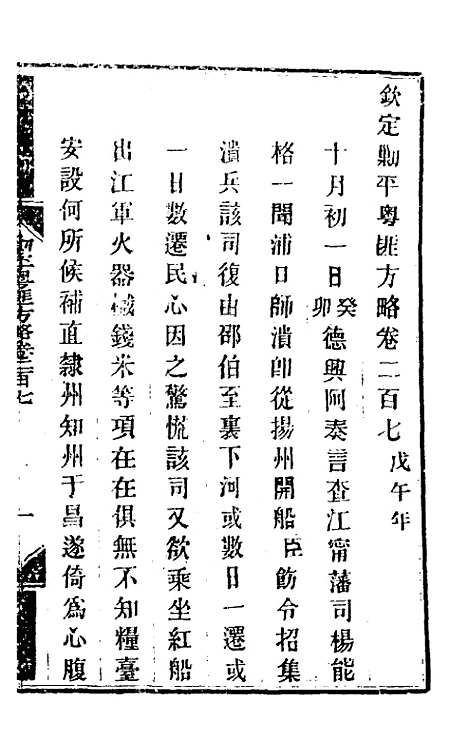 欽定勦平粵匪方略卷二百七戊午年
十月初一日癸卯德興阿奏言查江甯藩司楊能
格一聞浦口師潰卽從揚州開船臣飭令招集
潰兵該司復由邵伯至裏下河或數日一遷或
一日數遷民心因之驚慌該司又欲乘坐紅船
出江軍火器械錢米等項在在俱無不知糧臺
安設何所候補直隸州知州于昌遂倚爲心腹
平粵匪方略卷二百七
一